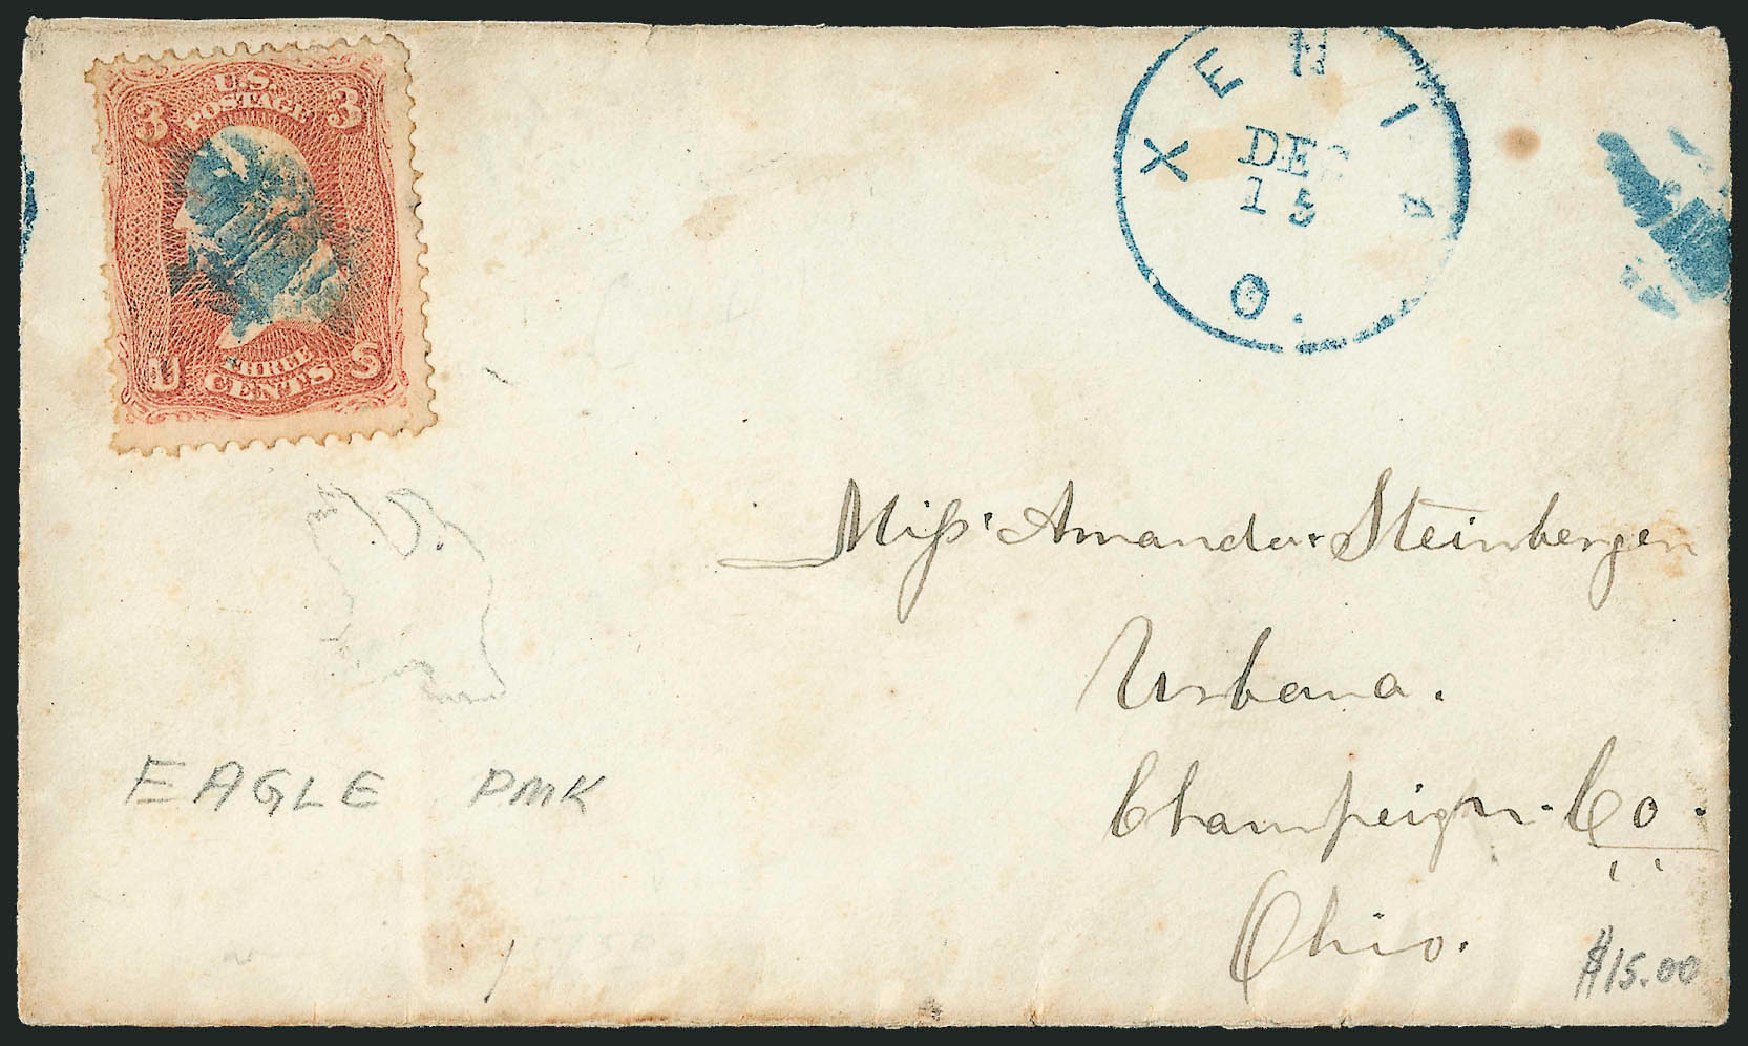 3 U.S. 3
POSTAGE
U THREE S
CENTS
XENIA
DEC
13
O.
Miss Amanda Steinbergen
Urbana.
Champeign. Co.
Ohio.
EAGLE PMK
$15.00